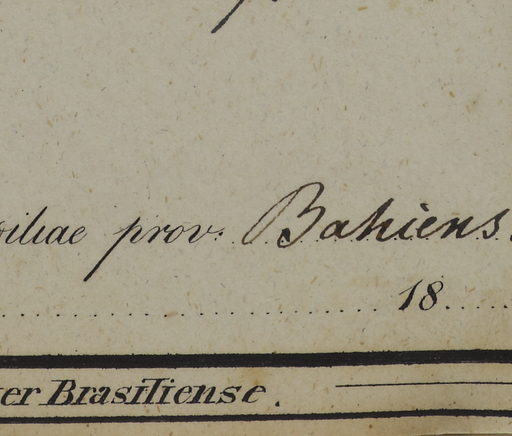 iliae prov. Bahiens.
18
er Brasiliense.